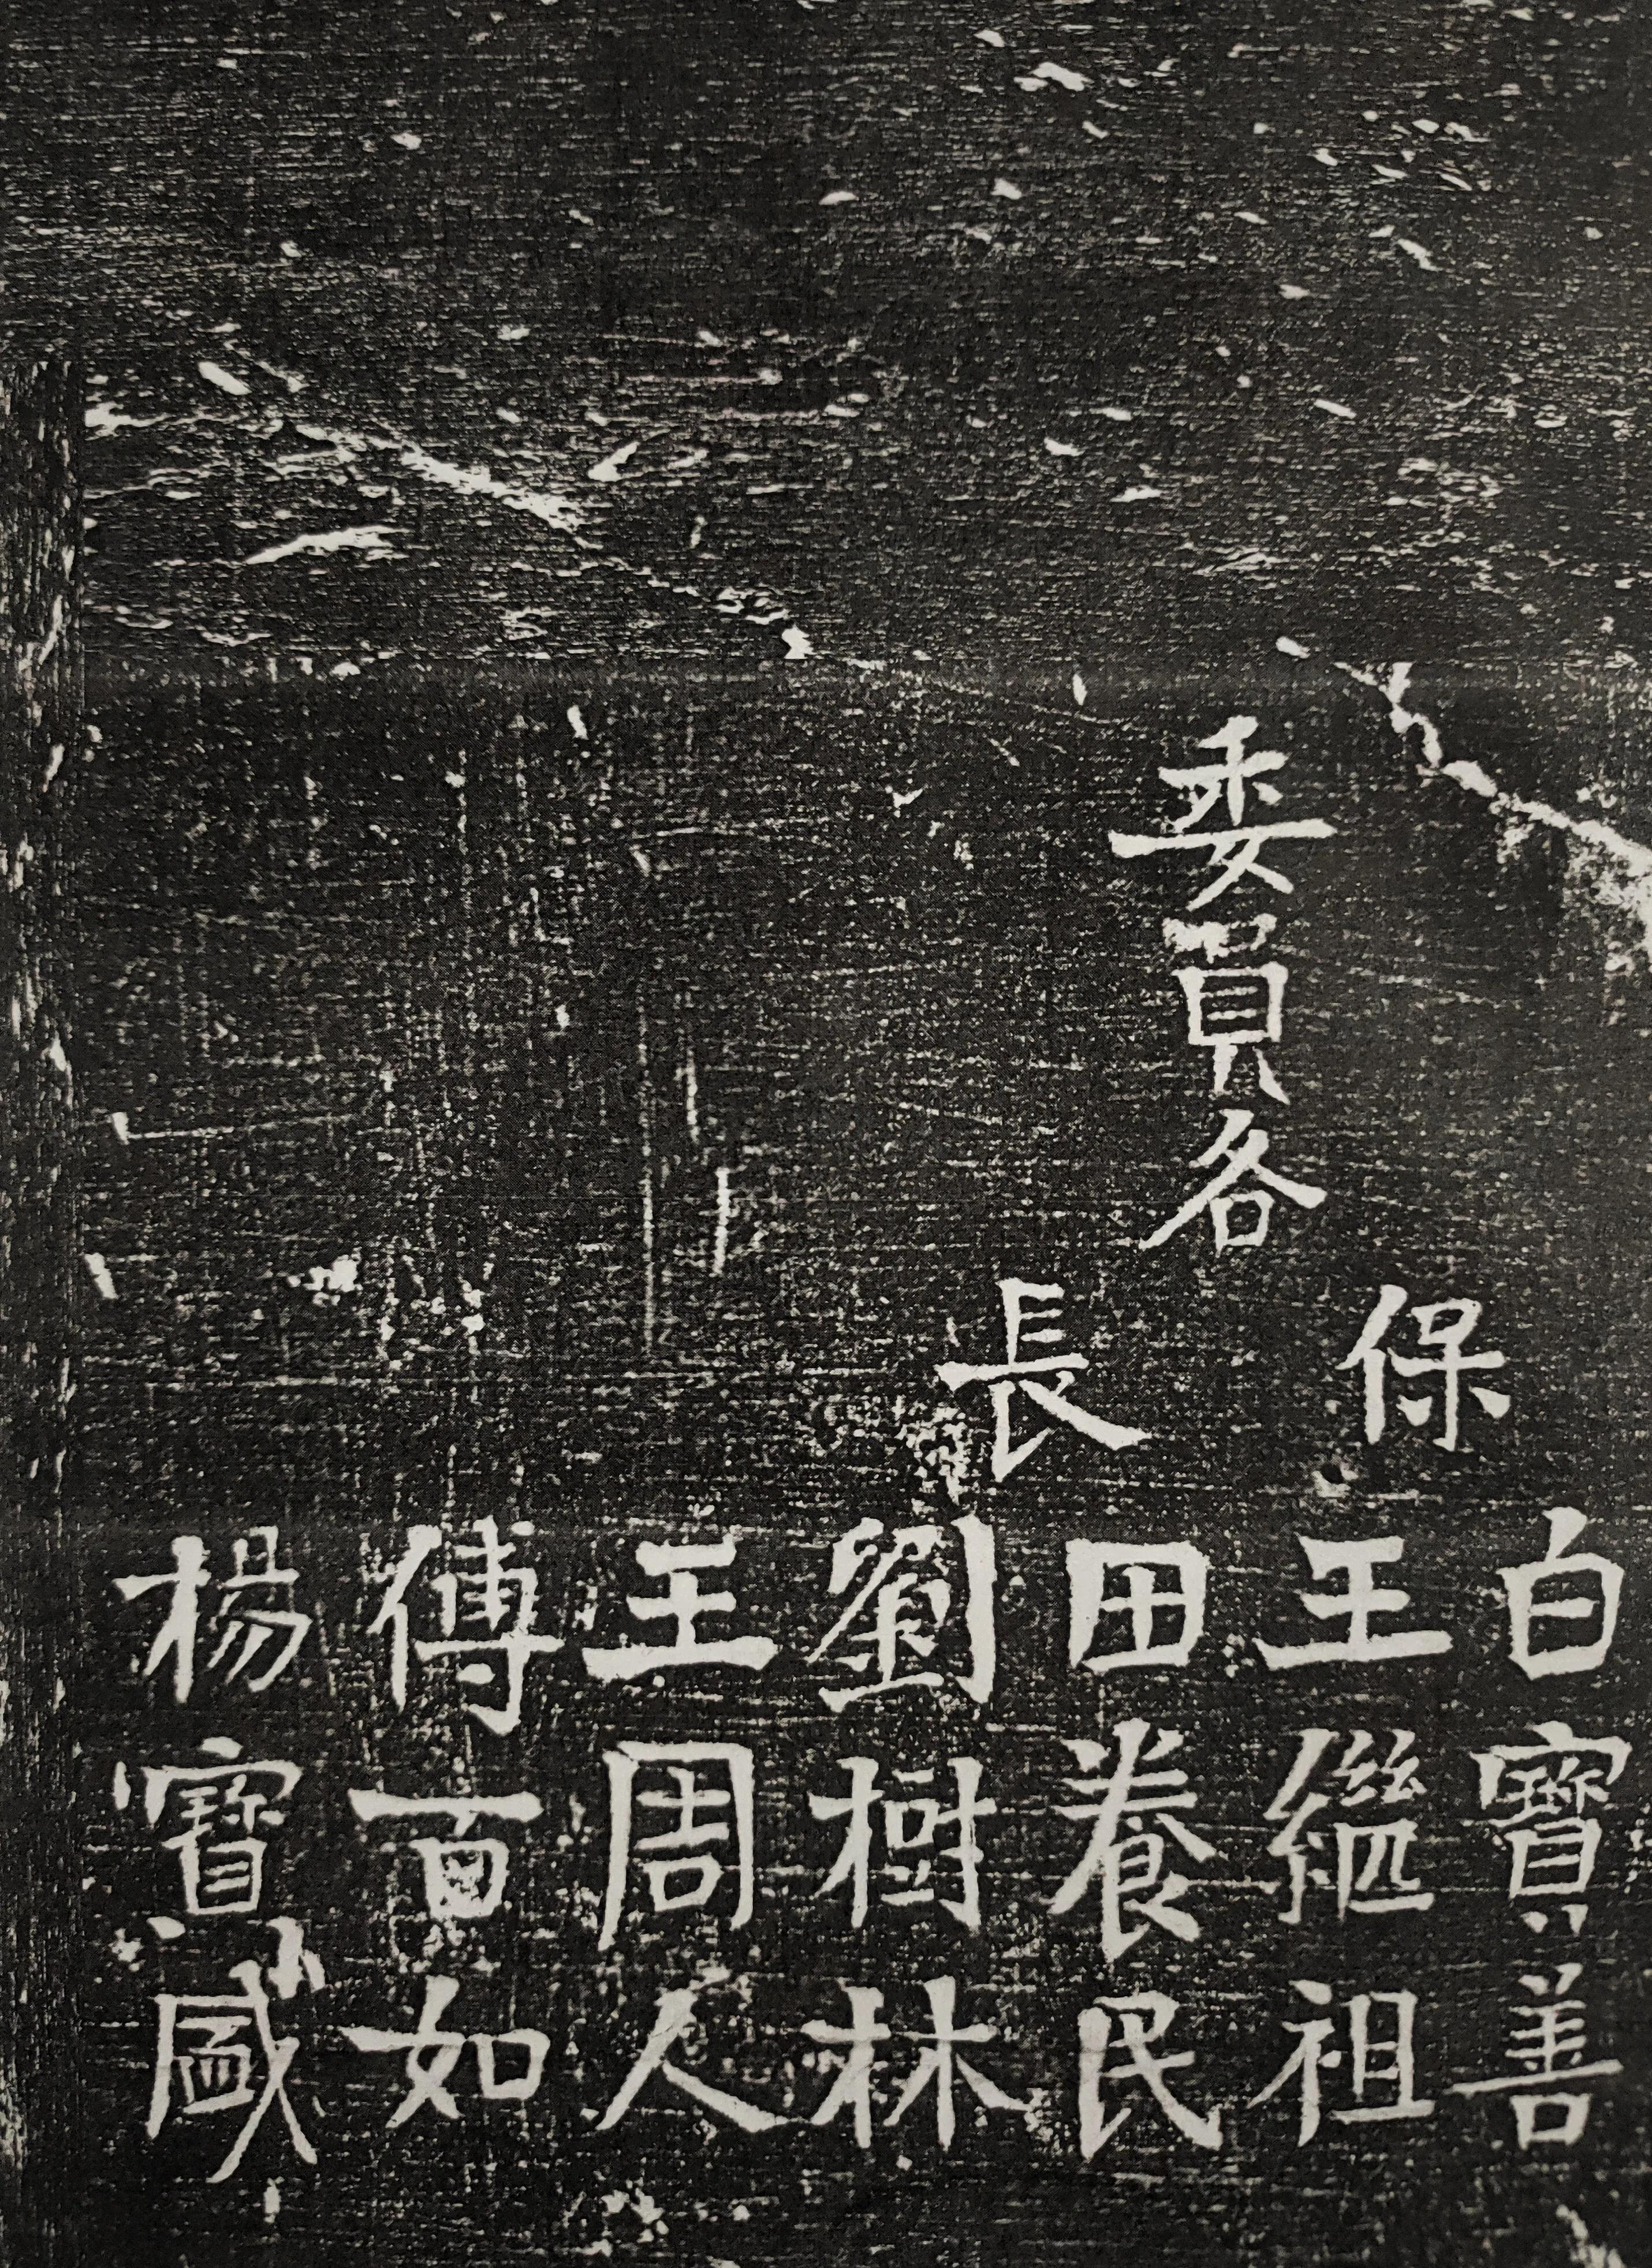 委員各
保長
白寶善
王繼祖
田養民
劉樹林
王周人
傅百如
楊寶臧